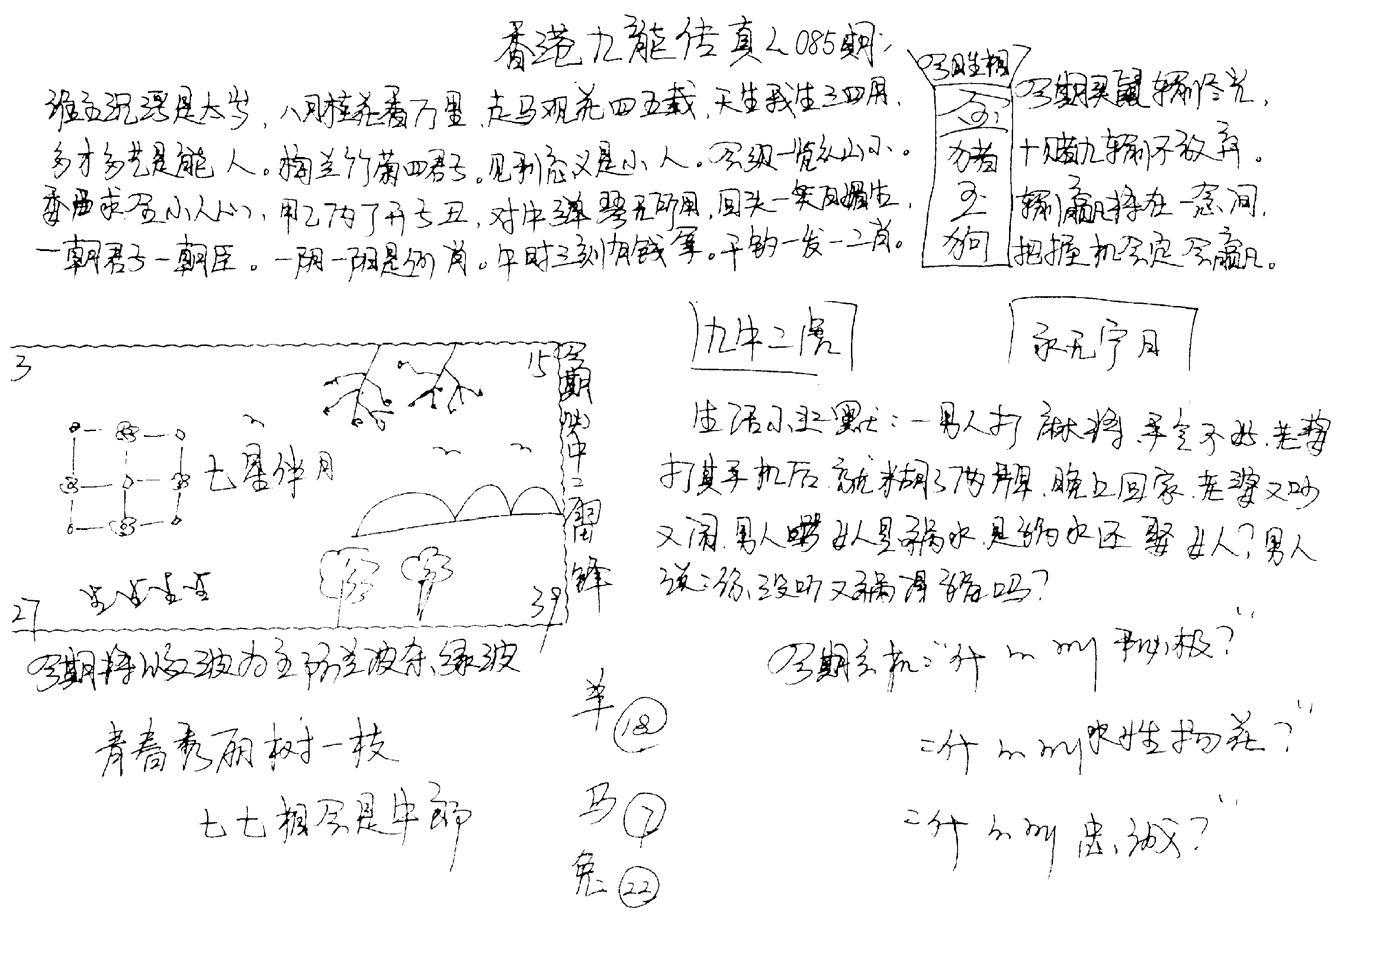 香港九龙传真 085期
谁主沉浮是太岁，八月桂花香万里，走马观花四五载，天生我生三四用，
多才多艺是能人。梅兰竹菊四君子。见利忘义是小人。会级一览众山小。
委曲求全小人心，甲乙丙丁开亏丑，对牛弹琴无所用，回头一笑百媚生，
一朝君子一朝臣。一阴一阳是何肖。午时三刻有钱拿。千钧一发一二肖。
今期生相
金
猪
玉
狗
今期买 输 光，
十赌九输不放弃。
输赢将在一念间，
把握机会定会赢。
九牛二虎
永无宁日
3
15
七星伴月
27
39
今期 中二留锋
生活小幽默：一男人打麻将手气不好，老婆
打其手机后就糊了两牌，晚上回家，老婆又吵
又闹，男人骂女人是祸水，是祸水还娶女人？男人
说：你没听又祸得福吗？
今期将以红波为主防兰波杂绿波
今期玄机："什 积极？"
青春秀丽树一枝
羊 18
"什 水性扬花？"
七七相会是牛郎
马 7
"什 忠诚？"
兔 22